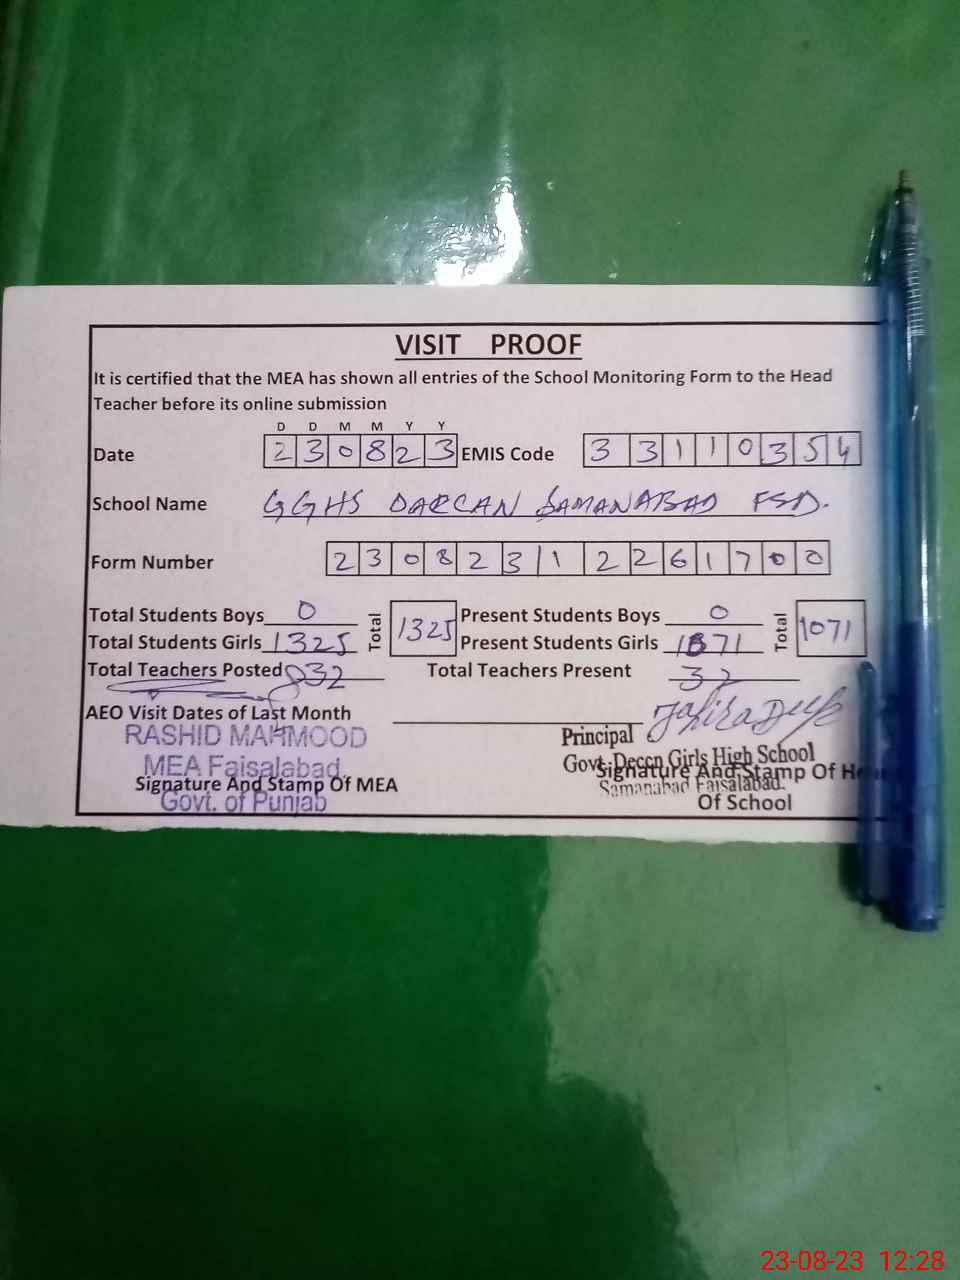 VISIT PROOF
It is certified that the MEA has shown all entries of the School Monitoring Form to the Head
Teacher before its online submission
D D M M Y Y
Date 2 3 0 8 2 3 EMIS Code 3 3 1 1 0 3 5 4
School Name GGHS DARCAN SAMANABAD FSD.
Form Number 2 3 0 8 2 3 1 2 2 6 1 7 0 0
Total Students Boys 0 Total 1325 Present Students Boys 0 Total 1071
Total Students Girls 1325 Present Students Girls 1071
Total Teachers Posted 32 Total Teachers Present 32
AEO Visit Dates of Last Month
RASHID MAHMOOD Principal
MEA Faisalabad. Govt. Deccn Girls High School
Signature And Stamp Of MEA Signature And Stamp Of
Govt. of Punjab Samanabad Faisalabad.
Of School
23-08-23 12:28